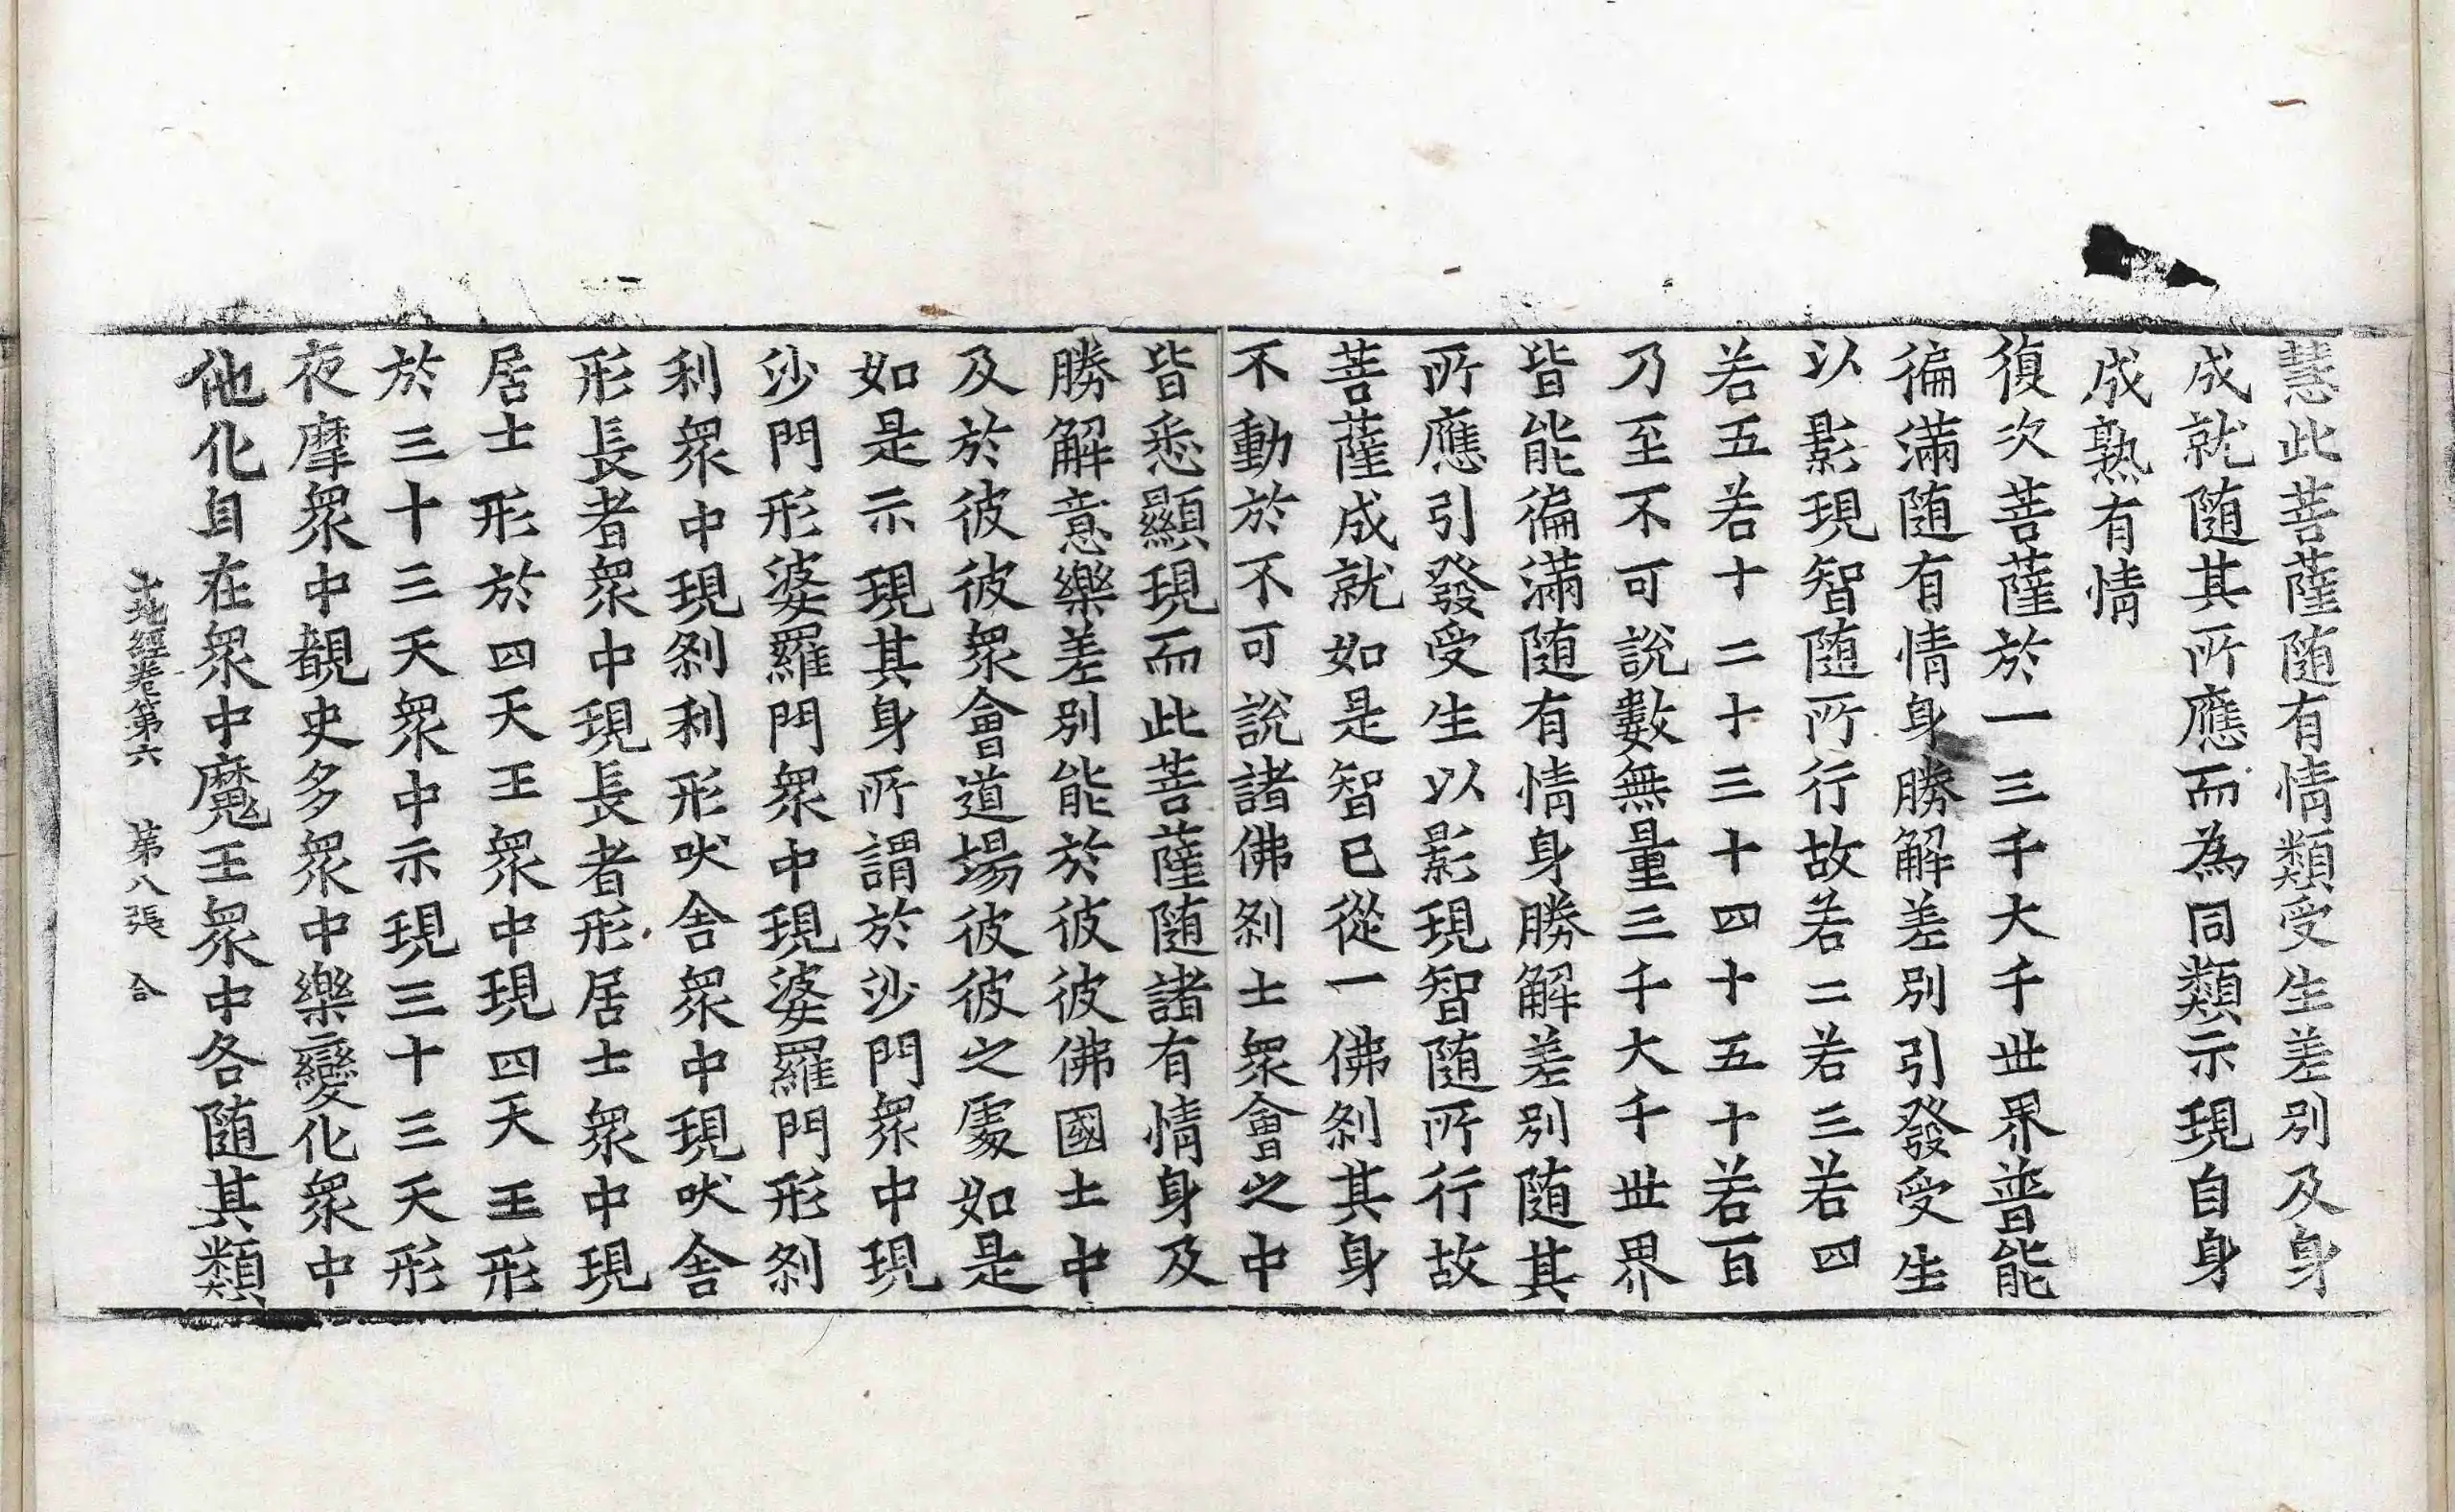 慧此菩薩随有情類受生差別及身
成就随其所應而為同類示現自身
成熟有情
復次菩薩於一三千大千世界普能
徧滿随有情身勝解差別引發受生
以影現智随所行故若二若三若四
若五若十二十三十四十五十若百
乃至不可說數無量三千大千世界
皆能徧滿随有情身勝解差別随其
所應引發受生以影現智随所行故
菩薩成就如是智已從一佛剎其身
不動於不可說諸佛剎土眾會之中
皆悉顯現而此菩薩随諸有情身及
勝解意樂差別能於彼彼佛國土中
及於彼彼眾會道場彼彼之處如是
如是示現其身所謂於沙門眾中現
沙門形婆羅門眾中現婆羅門形剎
利眾中現剎利形吠舍眾中現吠舍
形長者眾中現長者形居士眾中現
居士形於四天王眾中現四天王形
於三十三天眾中示現三十三天形
夜摩眾中覩史多眾中樂變化眾中
他化自在眾中魔王眾中各随其類
十地經卷第六 第八張 合